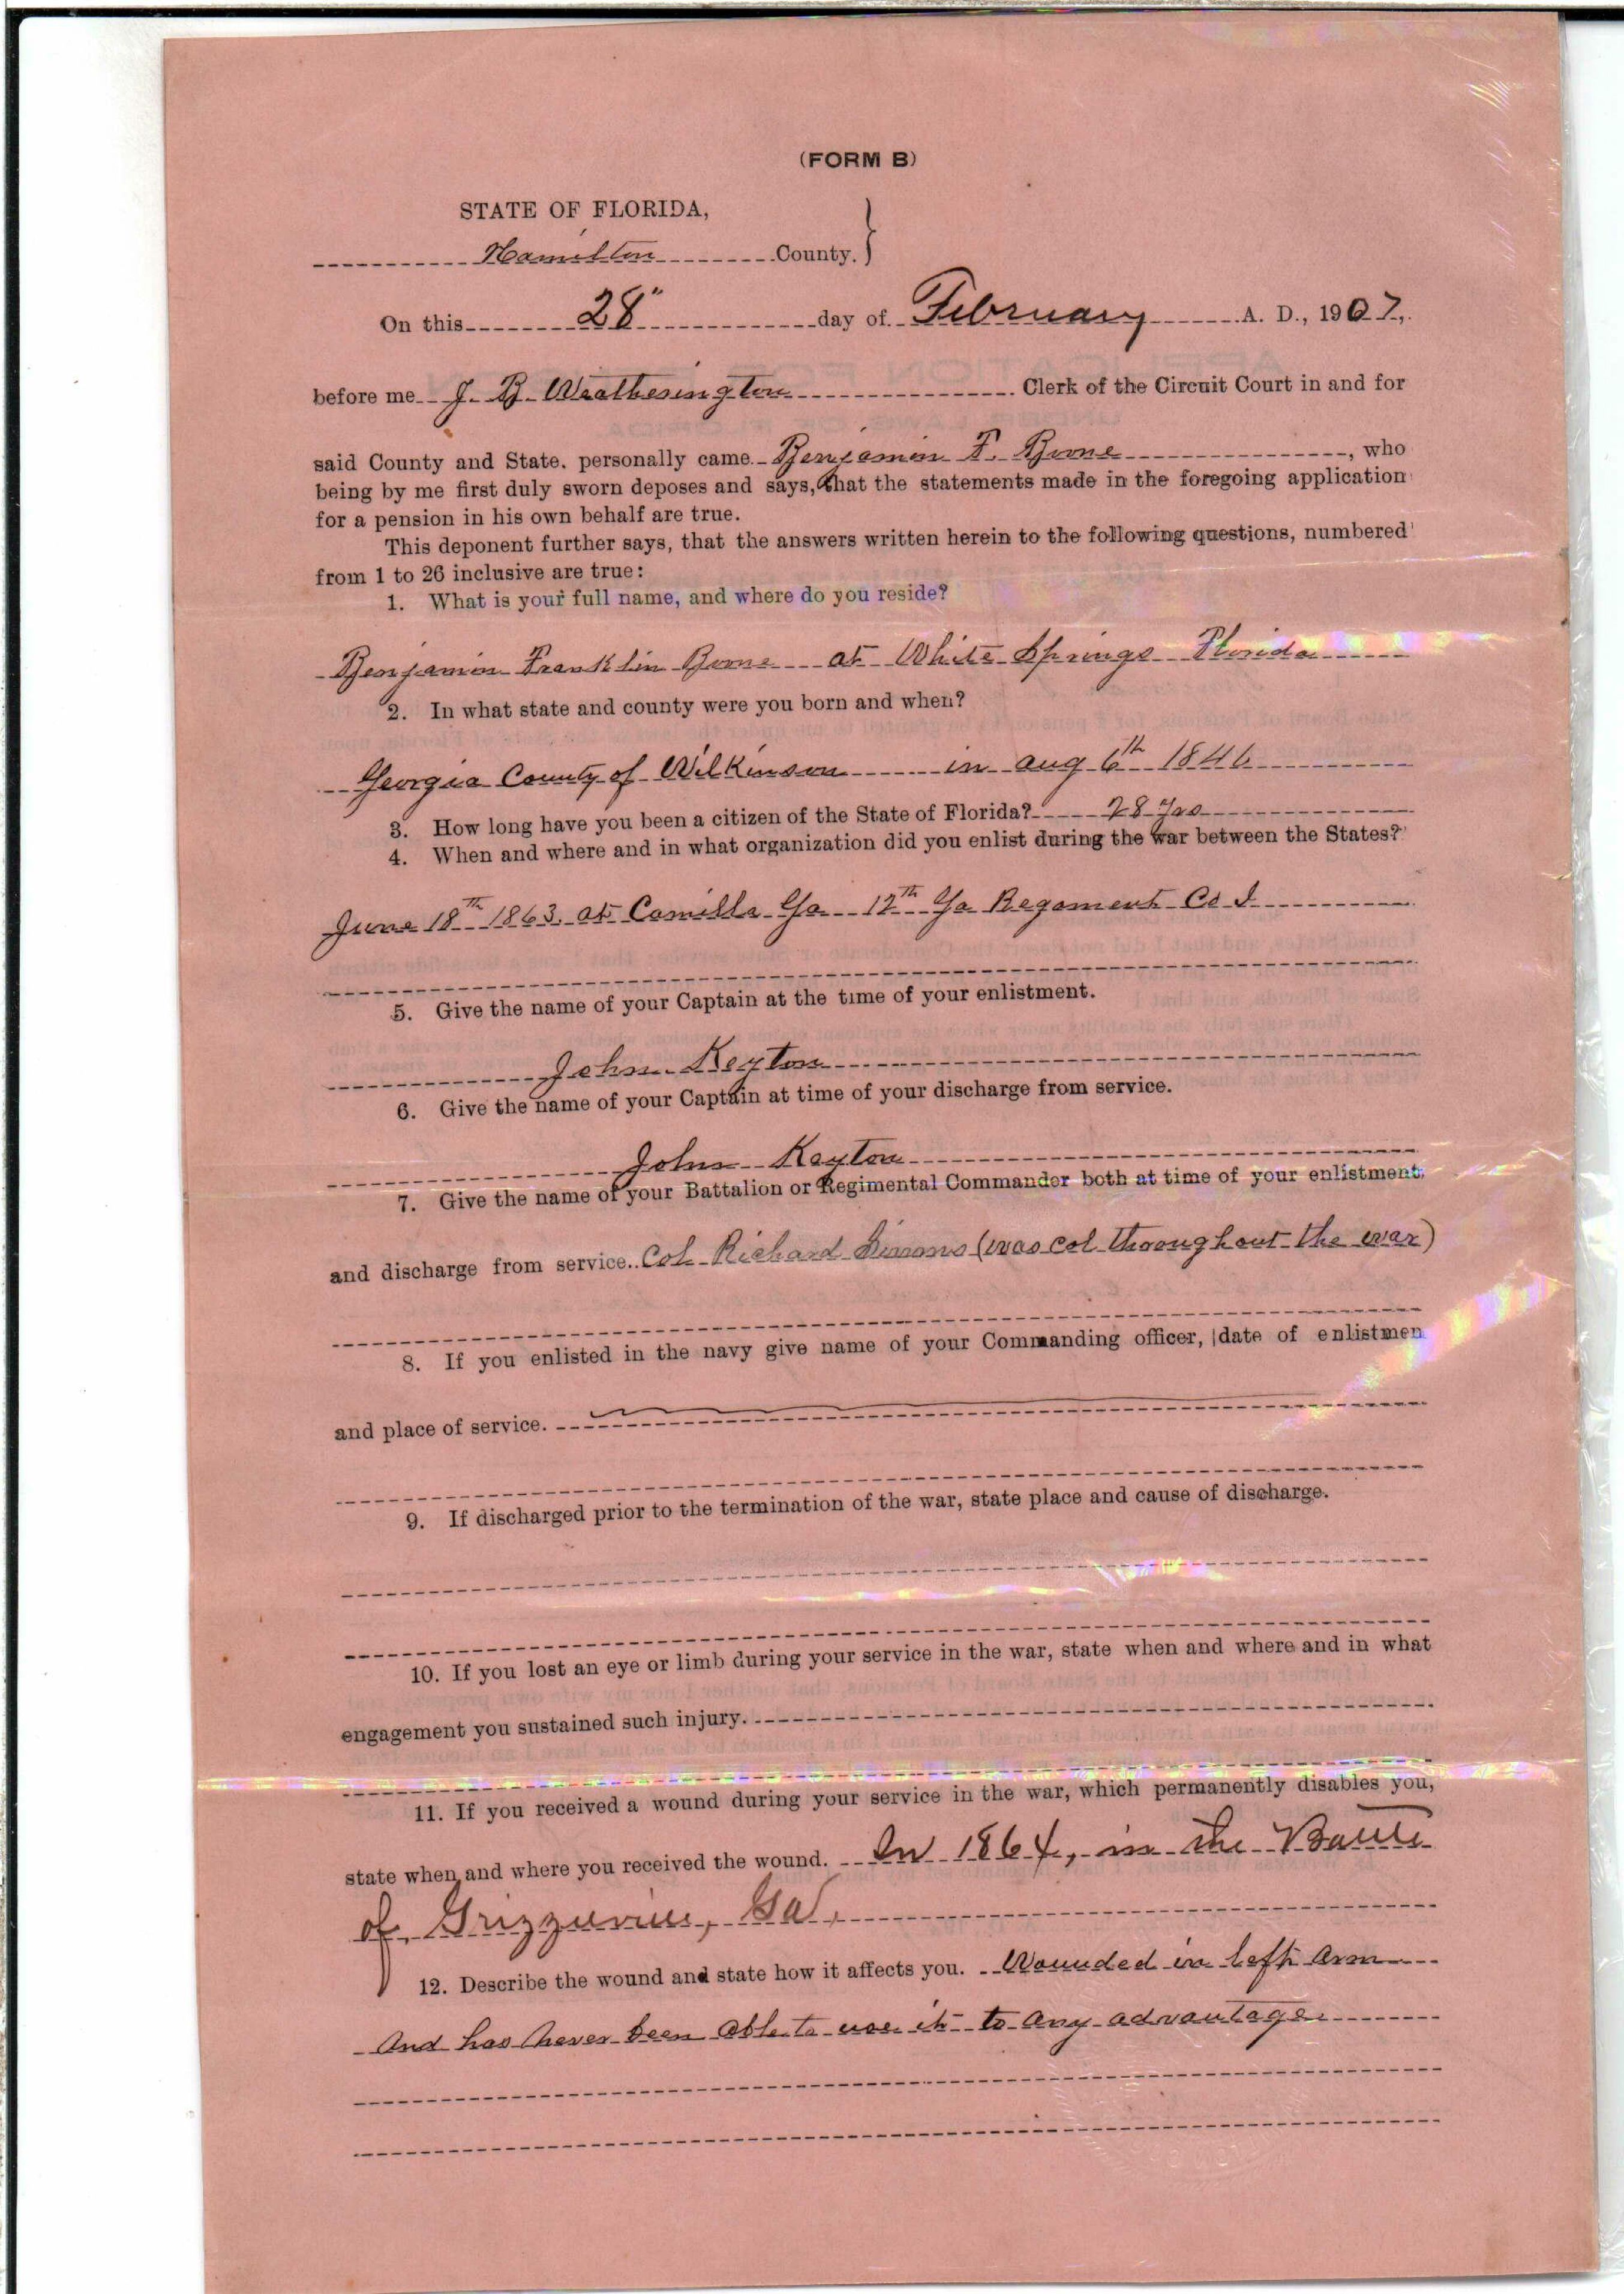 (FORM B)
STATE OF FLORIDA,
Hamilton County.
On this 28" day of February A. D., 1907,
before me J. B. Weathersington Clerk of the Circuit Court in and for
said County and State. personally came Benjamin F. Boone, who
being by me first duly sworn deposes and says, that the statements made in the foregoing application
for a pension in his own behalf are true.
This deponent further says, that the answers written herein to the following questions, numbered
from 1 to 26 inclusive are true:
1. What is your full name, and where do you reside?
Benjamin Franklin Boone at White Springs Florida
2. In what state and county were you born and when?
Georgia County of Wilkinson in aug 6th 1846
3. How long have you been a citizen of the State of Florida? 28 yrs
4. When and where and in what organization did you enlist during the war between the States?
June 18th 1863. at Camilla Ga 12th Ga Regament Co I
5. Give the name of your Captain at the time of your enlistment.
John Keyton
6. Give the name of your Captain at time of your discharge from service.
John Keyton
7. Give the name of your Battalion or Regimental Commander both at time of your enlistment
and discharge from service. Col. Richard (was col throughout the war)
8. If you enlisted in the navy give name of your Commanding officer, date of enlistmen
and place of service.
9. If discharged prior to the termination of the war, state place and cause of discharge.
10. If you lost an eye or limb during your service in the war, state when and where and in what
engagement you sustained such injury.
11. If you received a wound during your service in the war, which permanently disables you,
state when and where you received the wound. In 1864, in the Battle
of Grizzuville, Ga,
12. Describe the wound and state how it affects you. Wounded in left arm
and has never been able to use it to any advantage